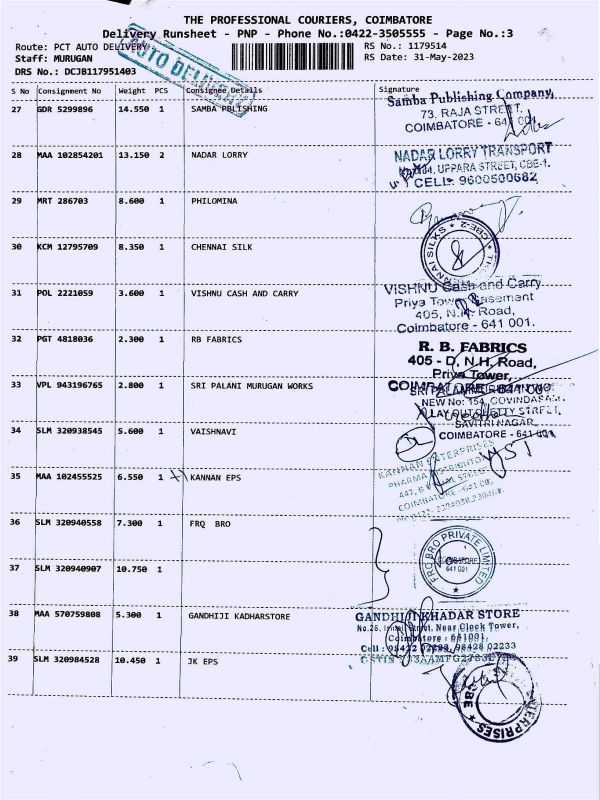 THE PROFESSIONAL COURIERS, COIMBATORE
Delivery Runsheet - PNP - Phone No.:0422-3505555 - Page No.:3
Route: PCT AUTO DELIVERY
RS No.: 1179514
Staff: MURUGAN
RS Date: 31-May-2023
DRS No.: DCJB117951403
AUTO DELIVERY
S No Consignment No Weight PCS Consignee Details Signature
27 GDR 5299896 14.550 1 SAMBA PBLISHING
Samba Publishing Company,
73, RAJA STREET,
COIMBATORE - 641 001
28 MAA 102854201 13.150 2 NADAR LORRY
NADAR LORRY TRANSPORT
UPPARA STREET, CBE-1.
CELL: 9600500682
29 MRT 286703 8.600 1 PHILOMINA
30 KCM 12795709 8.350 1 CHENNAI SILK
CBE-2
31 POL 2221059 3.600 1 VISHNU CASH AND CARRY
VISHNU Cash and Carry
Priya Tower Basement
405, N.H. Road,
Coimbatore - 641 001.
32 PGT 4818036 2.300 1 RB FABRICS
R. B. FABRICS
405 - D, N.H. Road,
Priya Tower,
COIMBATORE - 641 001
33 VPL 943196765 2.800 1 SRI PALANI MURUGAN WORKS
NEW No: 154, GOVINDASAMY
LAYOUT, CHETTY STREET,
SAVITRI NAGAR
COIMBATORE - 641 001
34 SLM 320938545 5.600 1 VAISHNAVI
35 MAA 102455525 6.550 1 KANNAN EPS
KANNAN ENTERPRISES
36 SLM 320940558 7.300 1 FRQ BRO
FRQ BRO PRIVATE LIMITED
COIMBATORE
641 001
37 SLM 320940907 10.750 1
38 MAA 570759808 5.300 1 GANDHIJI KADHARSTORE
GANDHIJI KHADAR STORE
Street, Near Clock Tower,
Coimbatore - 641001,
39 SLM 320984528 10.450 1 JK EPS
ENTERPRISES
CBE